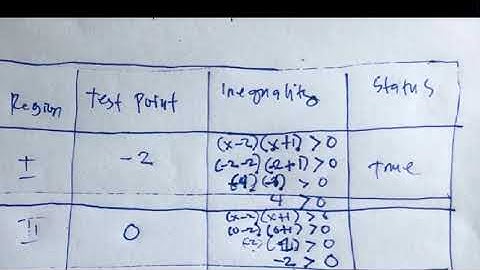 Region Test Point Inequality Status
I -2 (x-2)(x+1) > 0 true
(-2-2)(-2+1) > 0
(-4)(-1) > 0
4 > 0
II 0 (x-2)(x+1) > 0
(0-2)(0+1) > 0
(-2)(1) > 0
-2 > 0